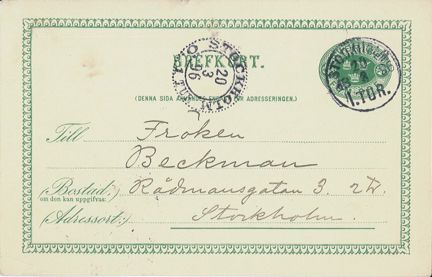 BREFKORT.
(DENNA SIDA ÄR AFSEDD ENDAST FÖR ADRESSERINGEN.)
STOCKHOLM
20
3
96
STOCKHOLM
20
1.TUR.
Till Froken
Beckman
(Bostad: Rådmansgatan 3. 2 tr.
om den kan uppgifvas:
(Adressort:) Stockholm.